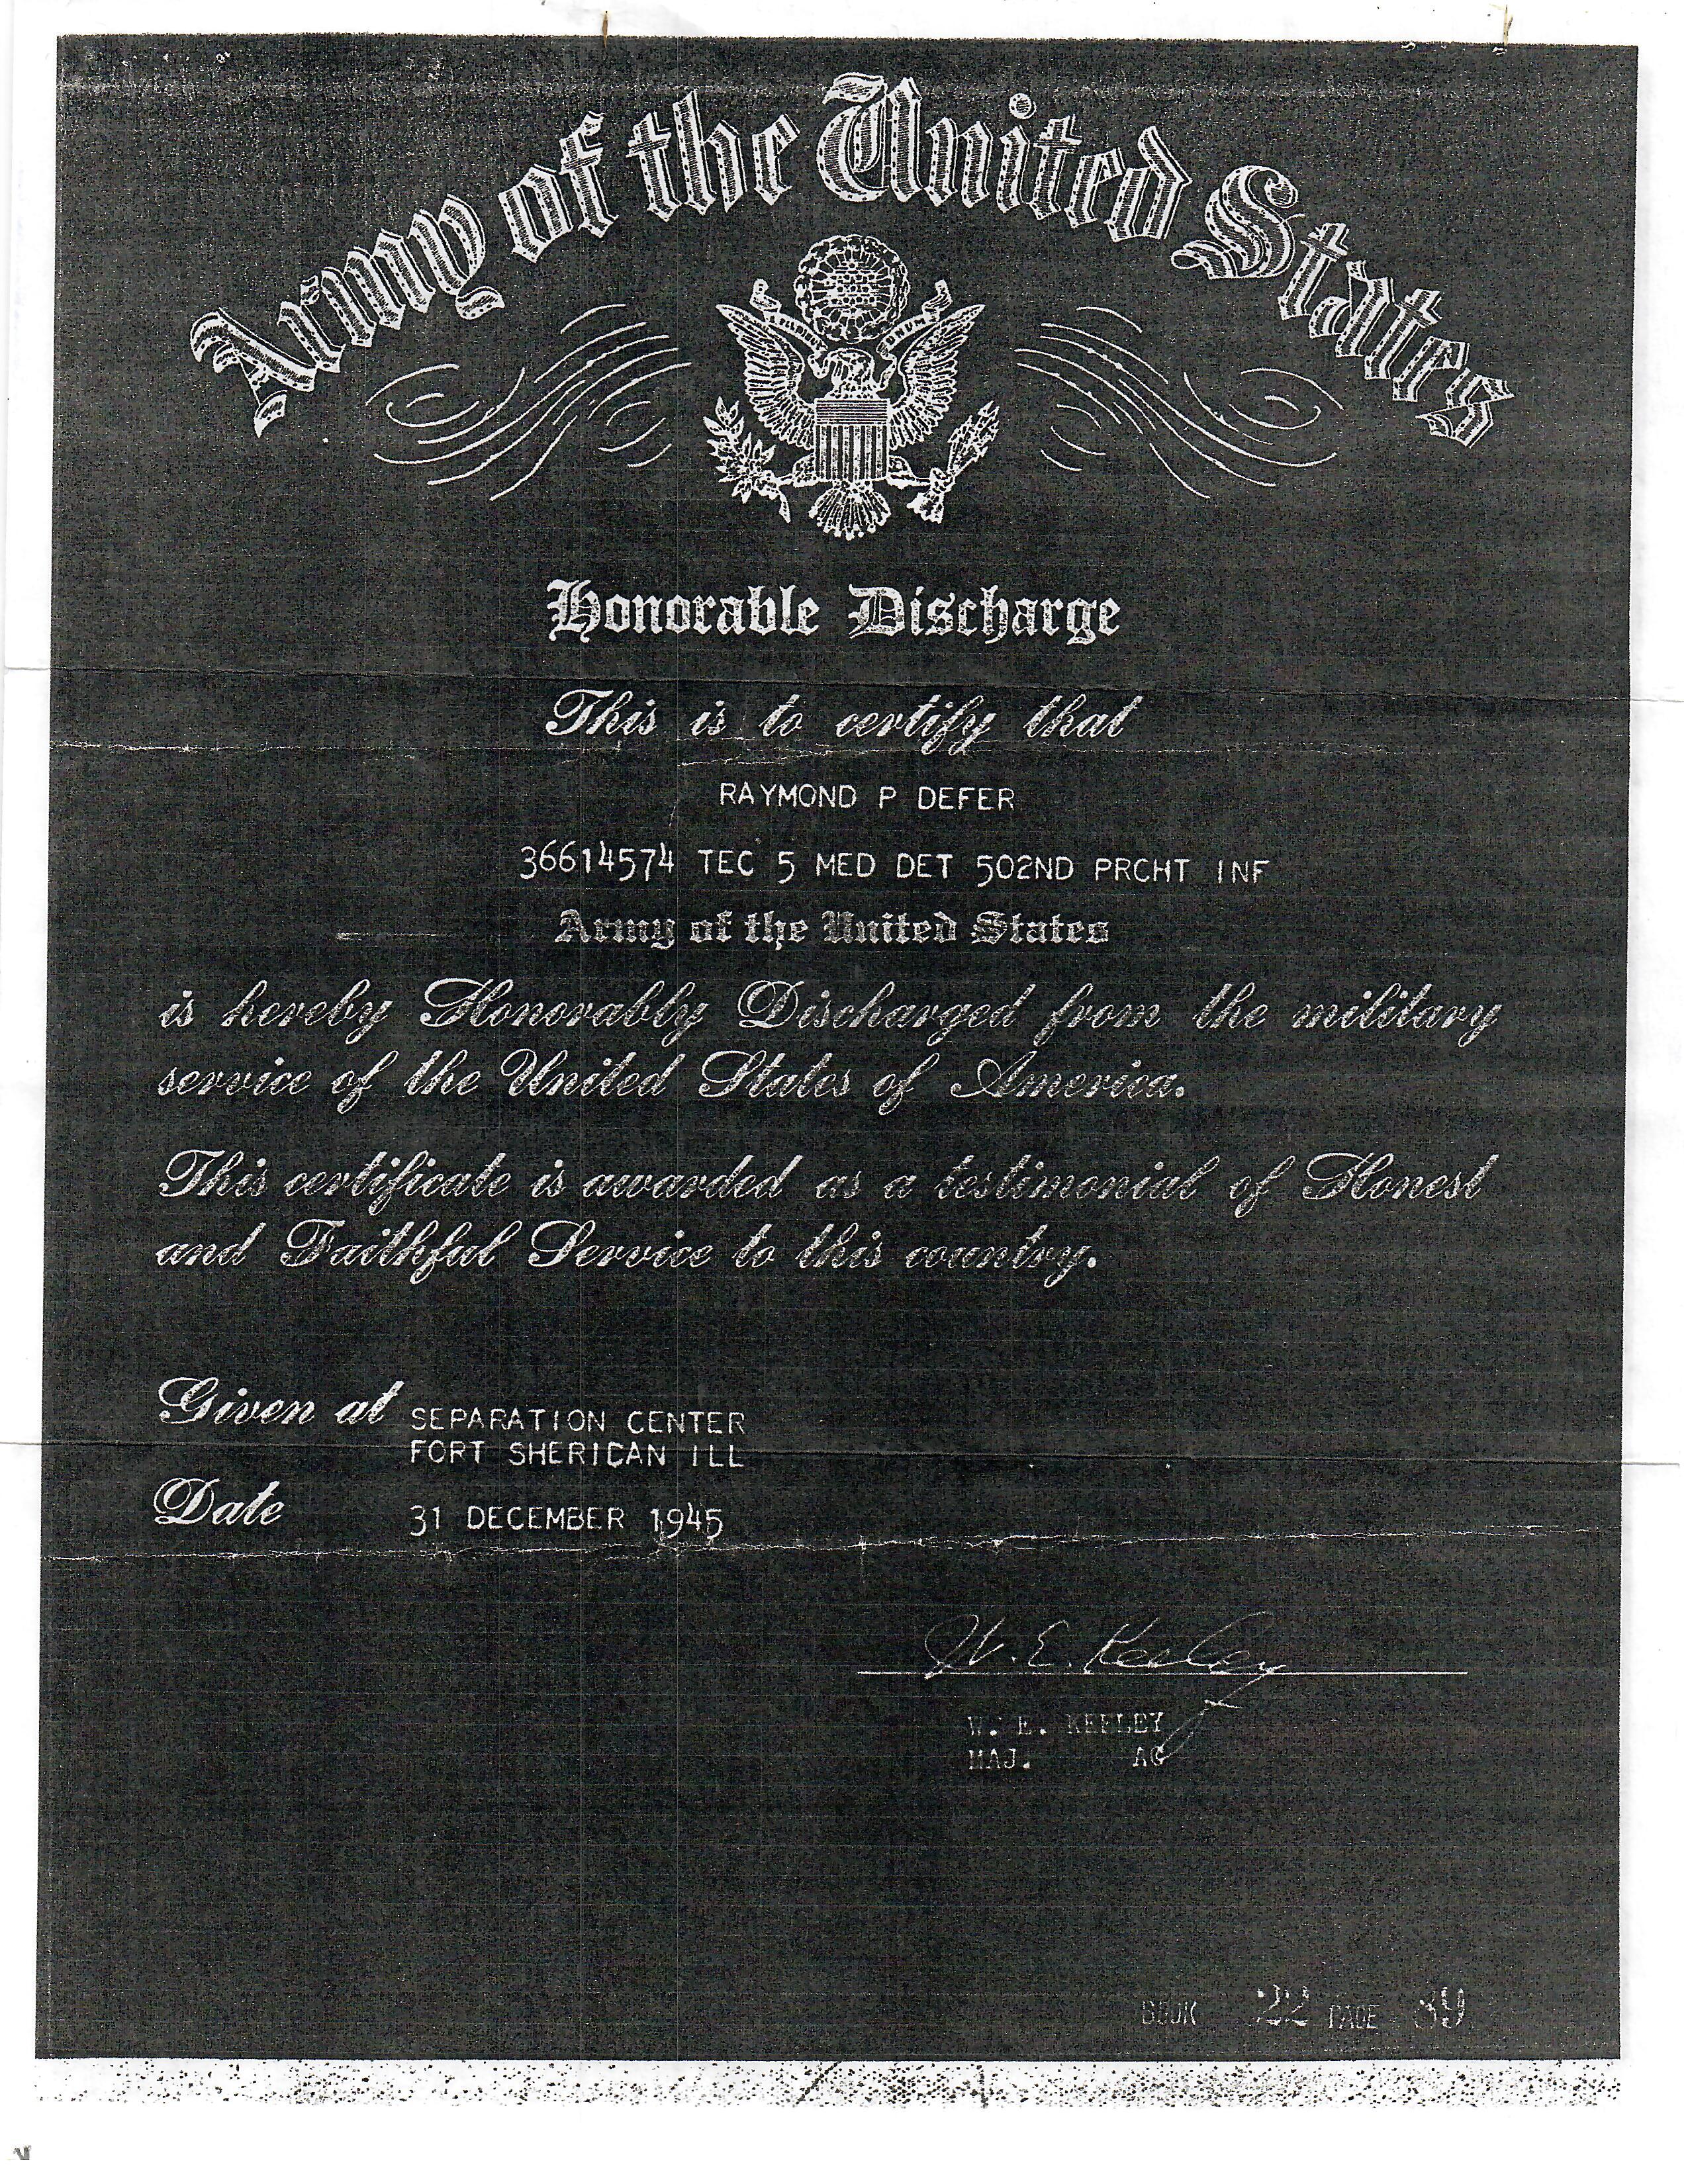 Army of the United States
Honorable Discharge
This is to certify that
RAYMOND P DEFER
36614574 TEC 5 MED DET 502ND PRCHT INF
Army of the United States
is hereby Honorably Discharged from the military
service of the United States of America.
This certificate is awarded as a testimonial of Honest
and Faithful Service to this country.
Given at SEPARATION CENTER
FORT SHERIDAN ILL
Date 31 DECEMBER 1945
W. E. Keeley
W. E. KEELEY
MAJ. AG
BOOK 22 PAGE 39